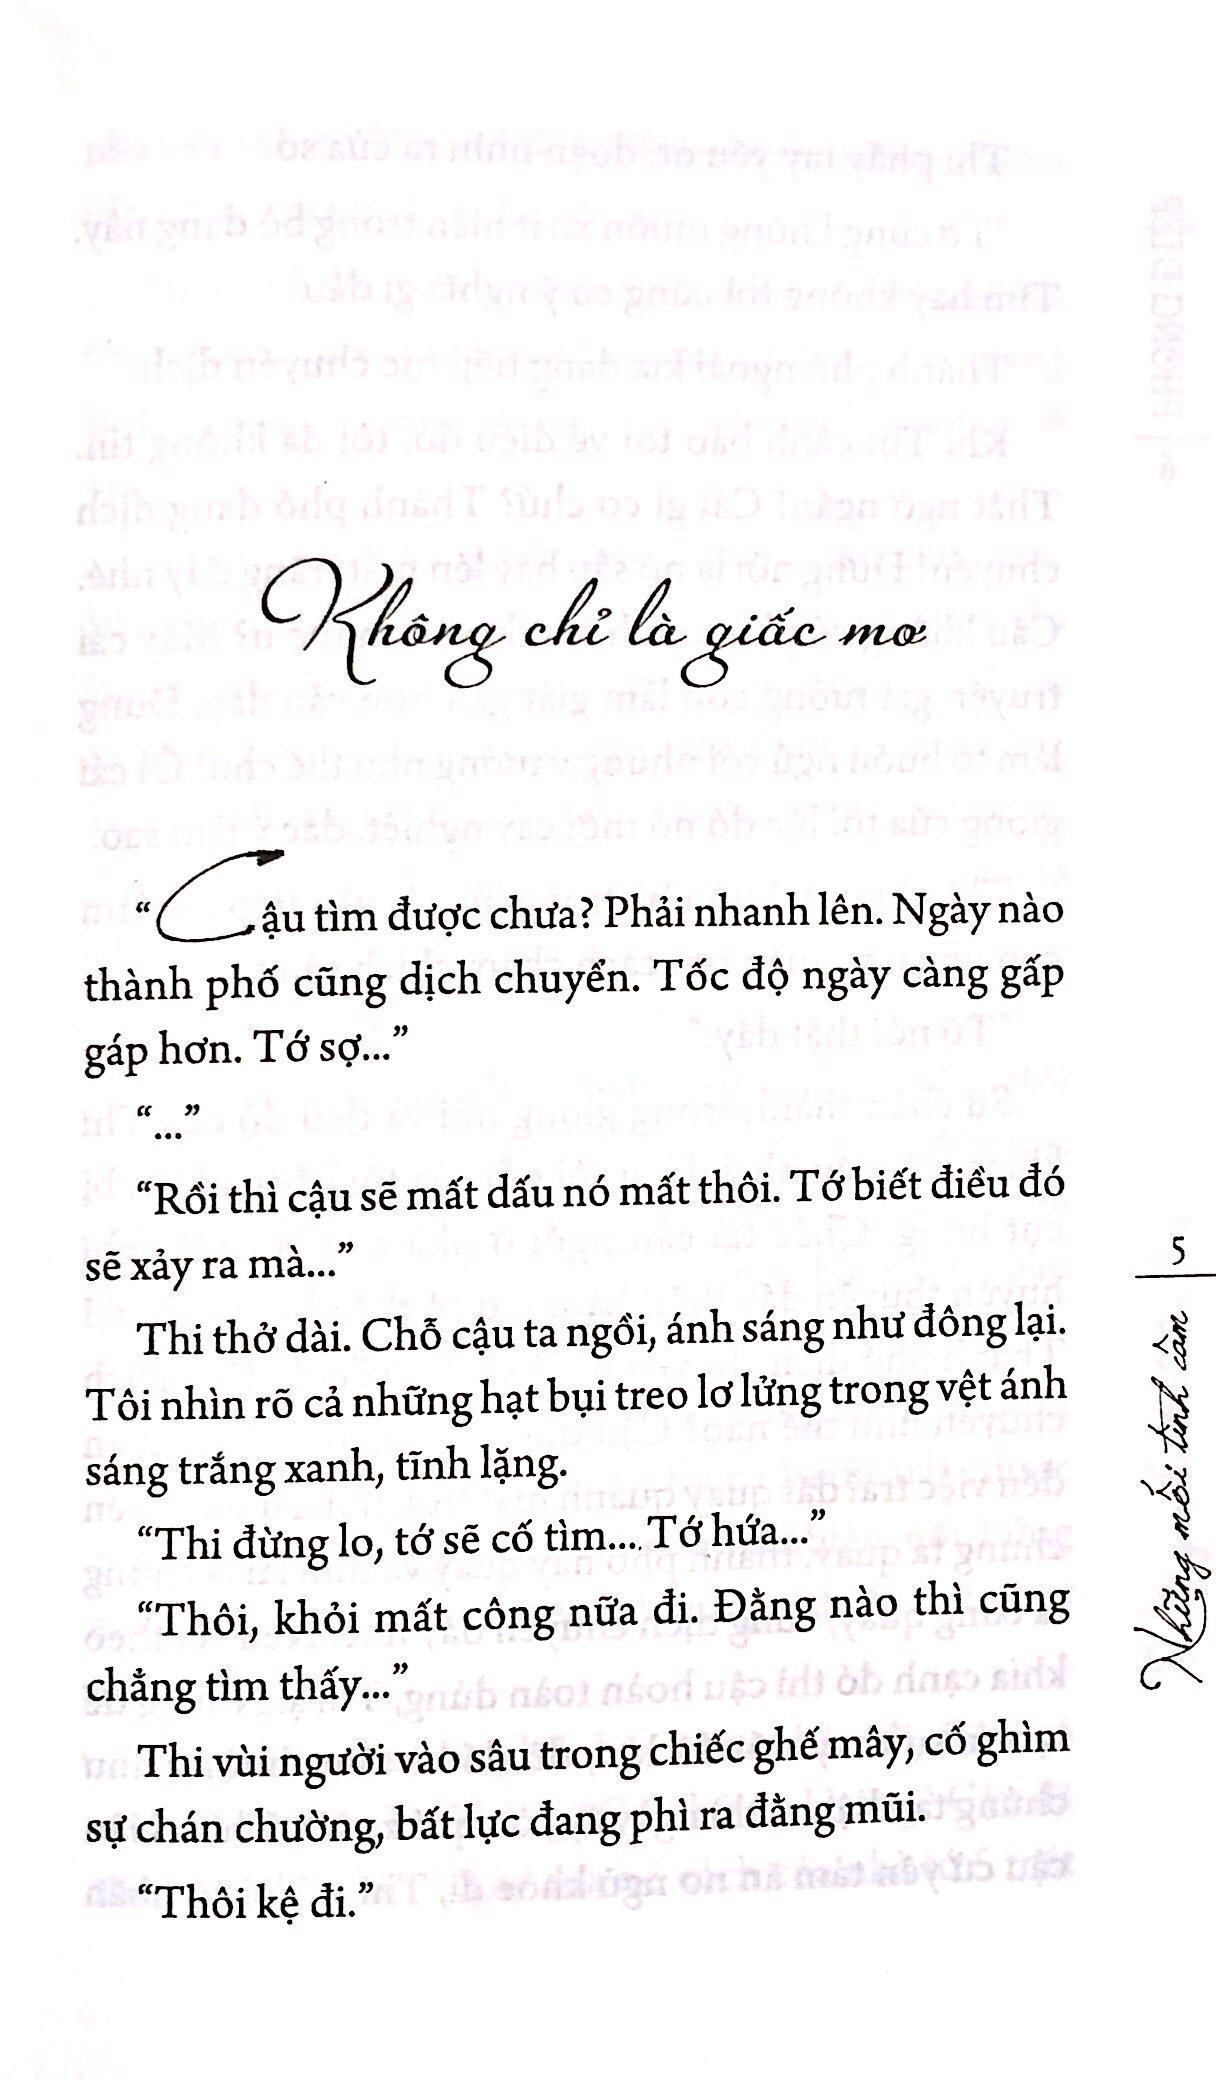 Không chỉ là giấc mơ
“Cậu tìm được chưa? Phải nhanh lên. Ngày nào
thành phố cũng dịch chuyển. Tốc độ ngày càng gấp
gáp hơn. Tớ sợ...”
“...”
“Rồi thì cậu sẽ mất dấu nó mất thôi. Tớ biết điều đó
sẽ xảy ra mà...”
Thi thở dài. Chỗ cậu ta ngồi, ánh sáng như đông lại.
Tôi nhìn rõ cả những hạt bụi treo lơ lửng trong vệt ánh
sáng trắng xanh, tĩnh lặng.
“Thi đừng lo, tớ sẽ cố tìm.... Tớ hứa...”
“Thôi, khỏi mất công nữa đi. Đằng nào thì cũng
chẳng tìm thấy...”
Thi vùi người vào sâu trong chiếc ghế mây, cố ghìm
sự chán chường, bất lực đang phì ra đằng mũi.
“Thôi kệ đi.”
5
Những mối tình câm